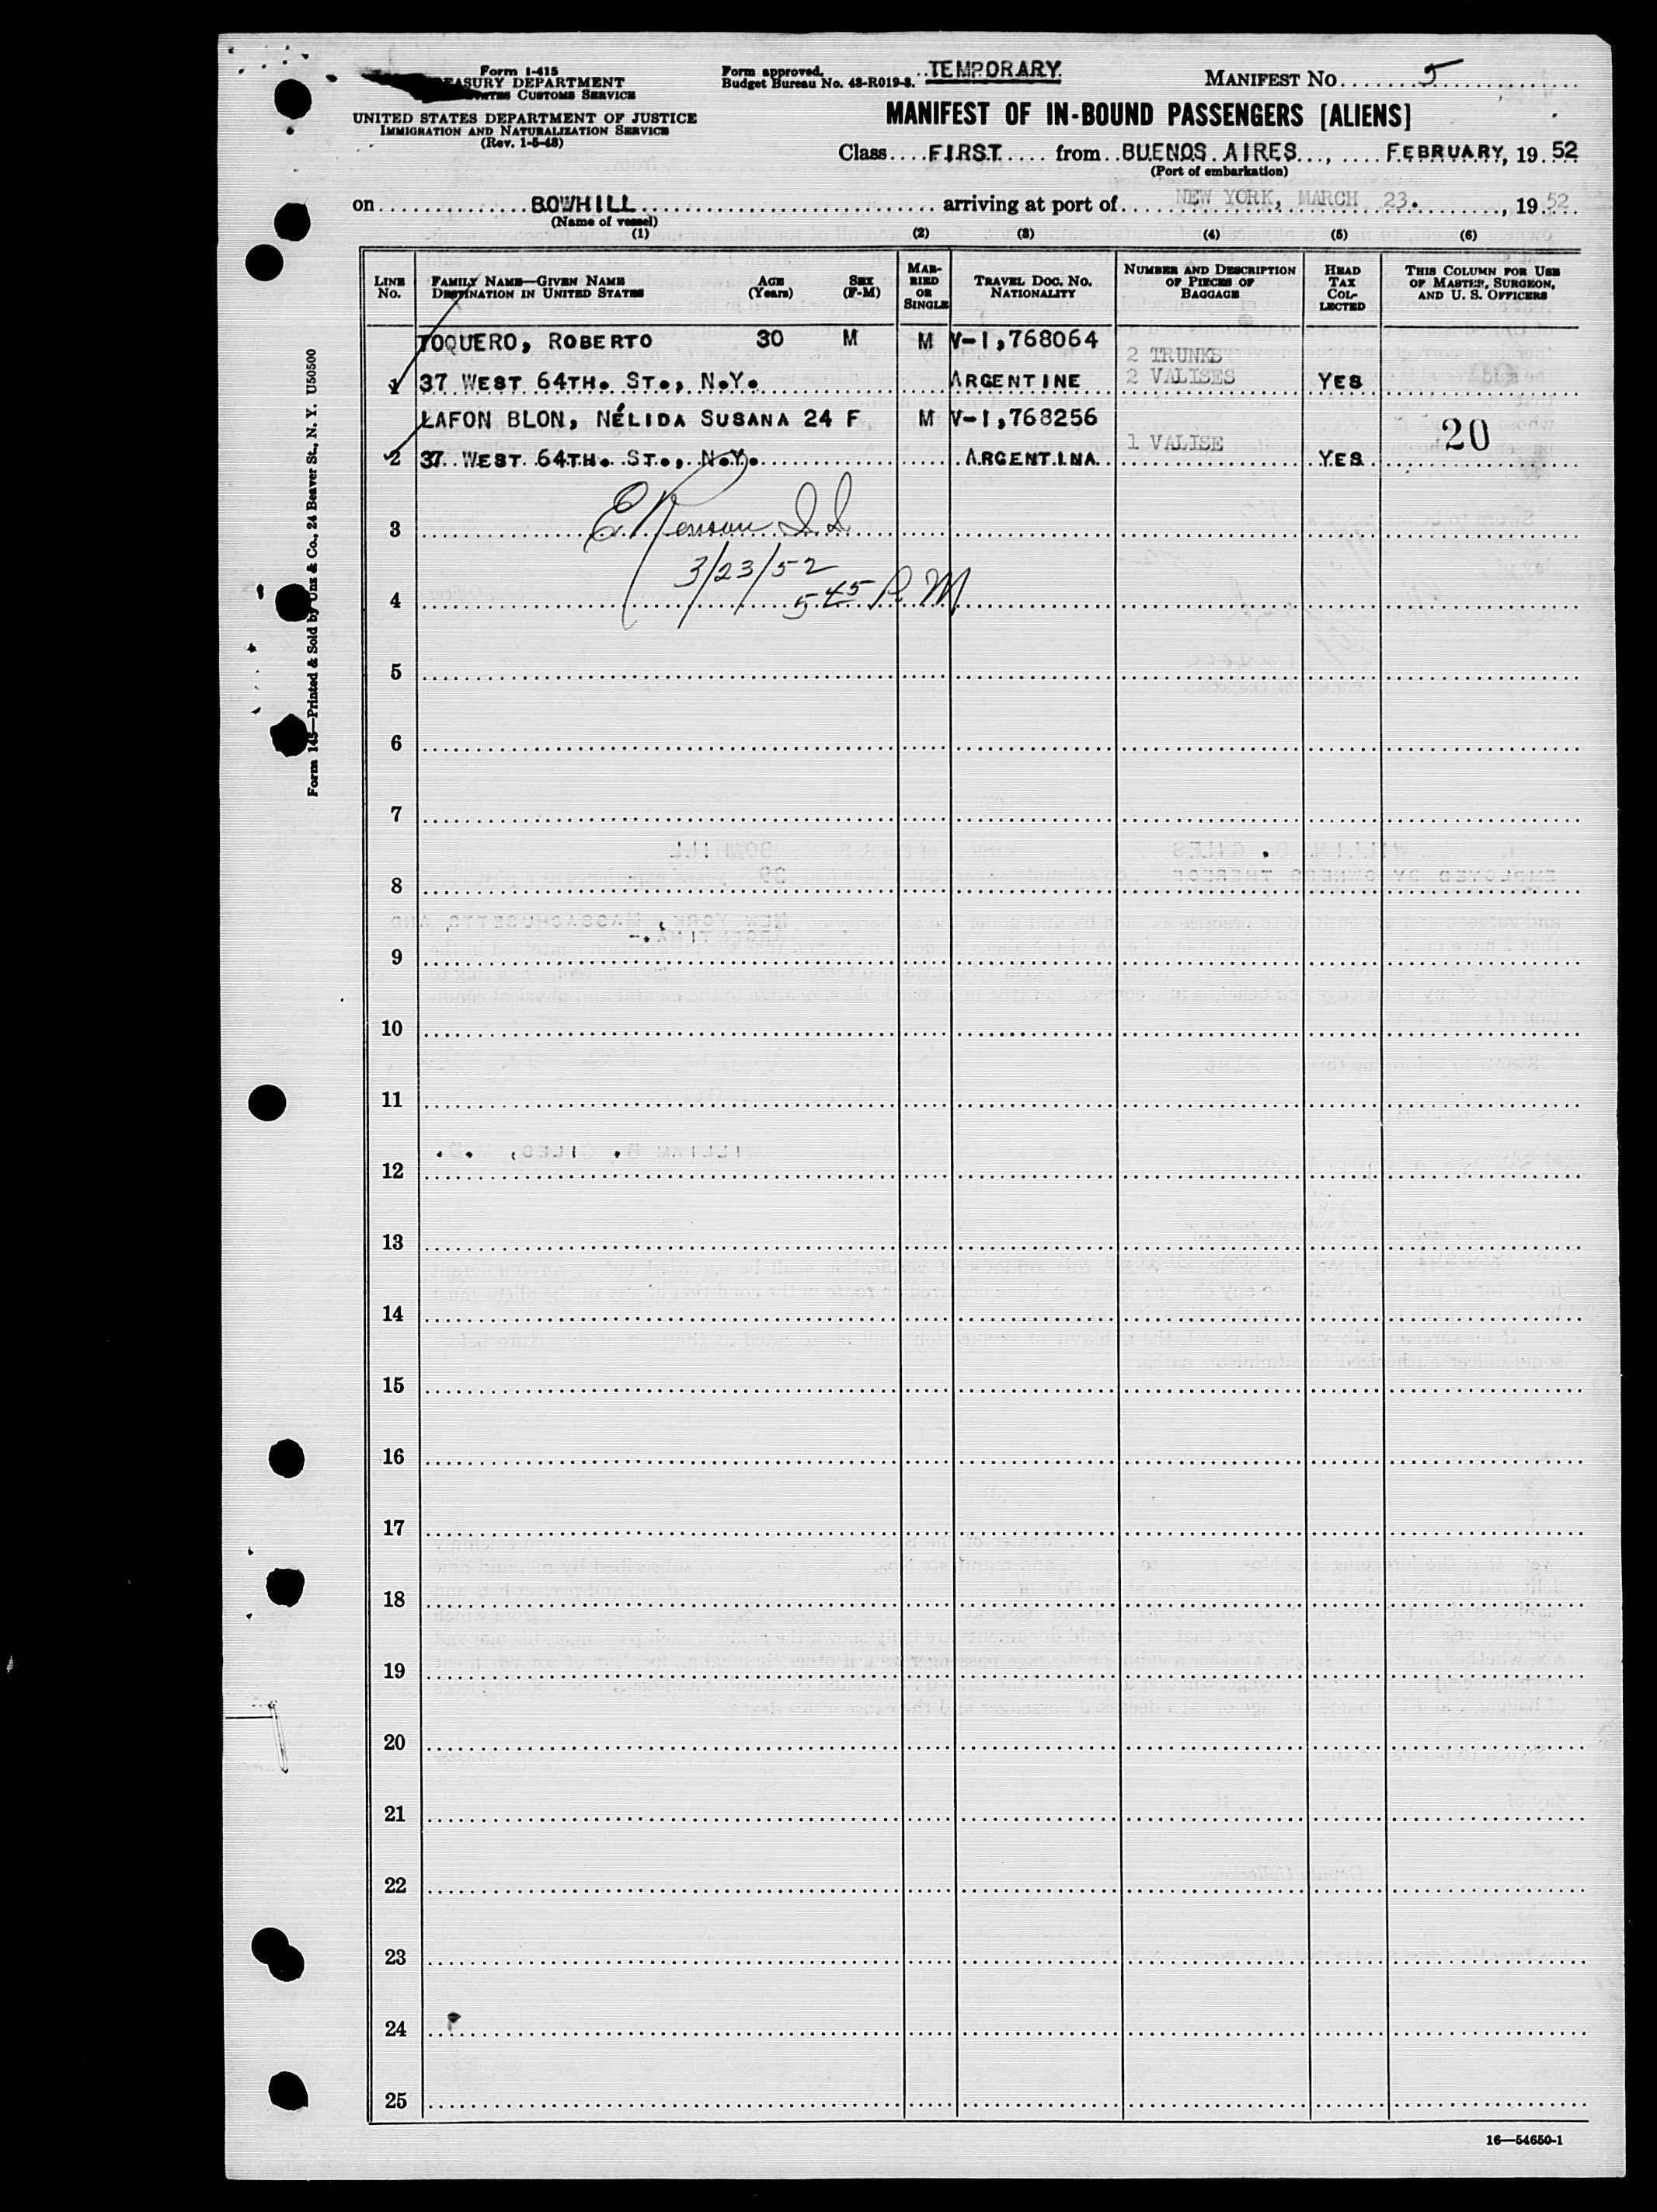 Form I-415
TREASURY DEPARTMENT
UNITED STATES CUSTOMS SERVICE
UNITED STATES DEPARTMENT OF JUSTICE
IMMIGRATION AND NATURALIZATION SERVICE
(Rev. 1-5-48)
Form approved.
Budget Bureau No. 43-R019-3.
TEMPORARY
MANIFEST NO. 5
MANIFEST OF IN-BOUND PASSENGERS [ALIENS]
Class FIRST from BUENOS AIRES, FEBRUARY, 1952
(Port of embarkation)
on BOWHILL arriving at port of NEW YORK, MARCH 23., 1952
(Name of vessel)
(1) (2) (3) (4) (5) (6)
LINE NO. FAMILY NAME—GIVEN NAME DESTINATION IN UNITED STATES AGE (Years) SEX (F-M) MARRIED OR SINGLE TRAVEL DOC. NO. NATIONALITY NUMBER AND DESCRIPTION OF PIECES OF BAGGAGE HEAD TAX COLLECTED THIS COLUMN FOR USE OF MASTER, SURGEON, AND U. S. OFFICERS
TOQUERO, ROBERTO 30 M M V-1,768064 2 TRUNKS
1 37 WEST 64TH. ST., N.Y. ARGENTINE 2 VALISES YES
LAFON BLON, NÉLIDA SUSANA 24 F M V-1,768256 20
2 37 WEST 64TH. ST., N.Y. ARGENTINA 1 VALISE YES
3
3/23/52
4 5 45 P.M
5
6
7
8
9
10
11
12
13
14
15
16
17
18
19
20
21
22
23
24
25
16—54650-1
Form 145—Printed & Sold by Unz & Co., 24 Beaver St., N. Y. U50500